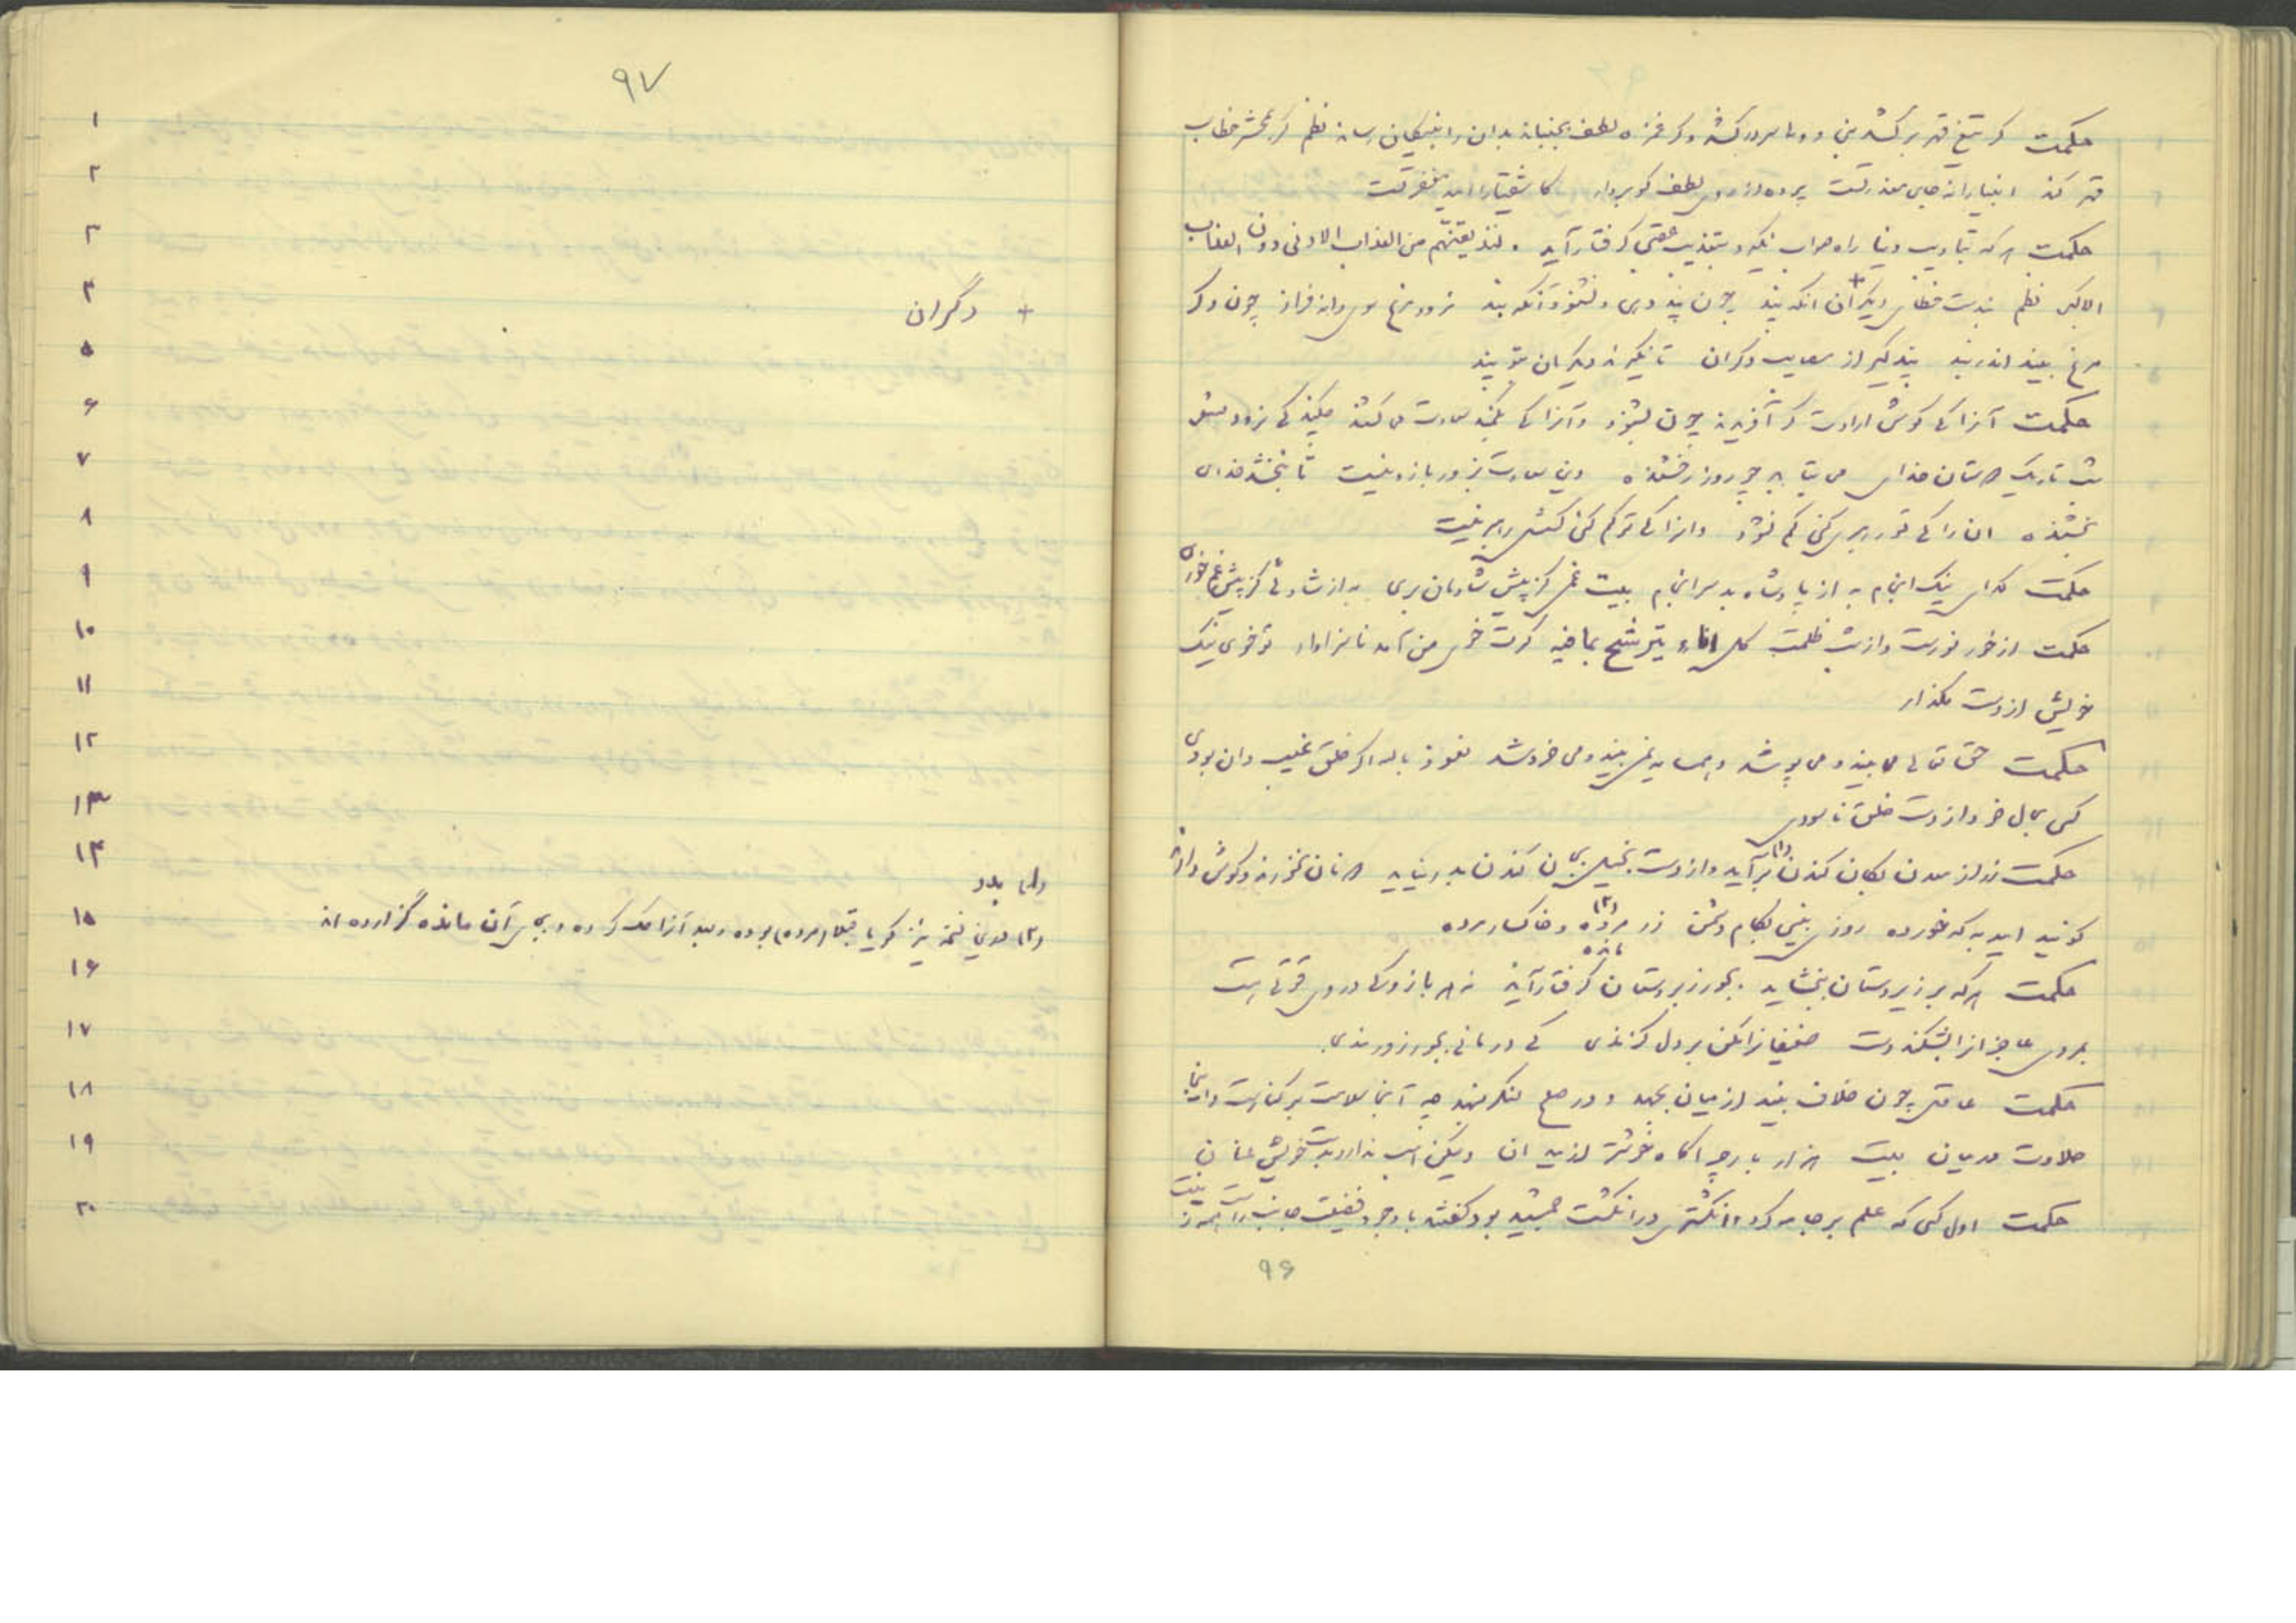 حکمت گر تیغ قهر برکشد نبی و ولی سر درکشد و گر غمزه لطف بجنباند بدان را بنیکان رساند نظم گر بمحشر خطاب
قهر کند انبیا را چه جای معذرتست پرده از روی لطف گو بردار کاشقیا را امید مغفرتست
حکمت هر که بتادیب دنیا راه صواب نگیرد بتعذیب عقبی گرفتار آید . لنذیقنّهم من العذاب الادنی دون العذاب
الاکبر نظم پندست خطاب دیگران آنگه بند چون پند دهی و نشنود آنکه بند نرود مرغ سوی دانه فراز چون دگر
مرغ بیند اندر بند پند گیر از مصایب دگران تا نگیرند دیگران بتو پند
حکمت آنرا که گوش ارادت گر آفریده‌اند چون بشنود و آنرا که بکمند سعادت می‌کشند چکند که نرود مثنوی
شب تاریک دوستان خدای می بتابد چو روز رخشنده وین سعادت بزور بازو نیست تا نبخشد خدای
بخشنده آن را که تو رهبری کنی کم نشود وانرا که تو گم کنی کسش رهبر نیست
حکمت گدای نیک انجام به از پادشاه بد سرانجام بیت غمی کز پیش شادمانی بری به از شادئی کز پیش غم خوری
حکمت از خور نورست و از شب ظلمت کل اناء یترشح بما فیه گرت خوی من آمد ناسزاوار تو خوی نیک
خویش از دست مگذار
حکمت حق تعالی می‌بیند و می‌پوشد و همسایه نمی‌بیند و می‌خروشد نعوذ بالله اگر خلق غیب دان بودی
کسی بحال خود از دست خلق ناسودی
حکمت زر از معدن بکان کندن (۱) برآید و از دست بخیل بجان کندن بدر نیاید دونان نخورند و گوش دارند
گویند امید به که خورده روزی بینی بکام دشمن زر مرده (۲) و خاکسار مرده
مانده
حکمت هر که بر زیردستان نبخشاید . بجور زبردستان گرفتار آید نه هر بازو که در وی قوتی هست
بمردی عاجزانرا بشکند دست ضعیفانرا مکن بر دل گزندی که درمانی بجور زورمندی
حکمت عاقل چون خلاف بیند از میان بجهد و در صلح لنگر بنهد چه آنجا سلامت بر کنارست و اینجا
حلاوت در میان بیت هزار بار چراگاه خوشتر از میدان ولیکن اسب ندارد بدست خویش عنان
حکمت اول کسی که علم بر جامه کرد و انگشتری در انگشت جمشید بود گفتند با وجود فضیلت جانب راست بچپ
۹۶
۹۷
۱
۲
۳
۴ + دگران
۵
۶
۷
۸
۹
۱۰
۱۱
۱۲
۱۳
۱۴ (۱) بدر
۱۵ (۲) در این نسخه نیز گویا قبلا (مرده) بوده و بعد آنرا حک کرده و بجای آن مانده گزارده‌اند
۱۶
۱۷
۱۸
۱۹
۲۰